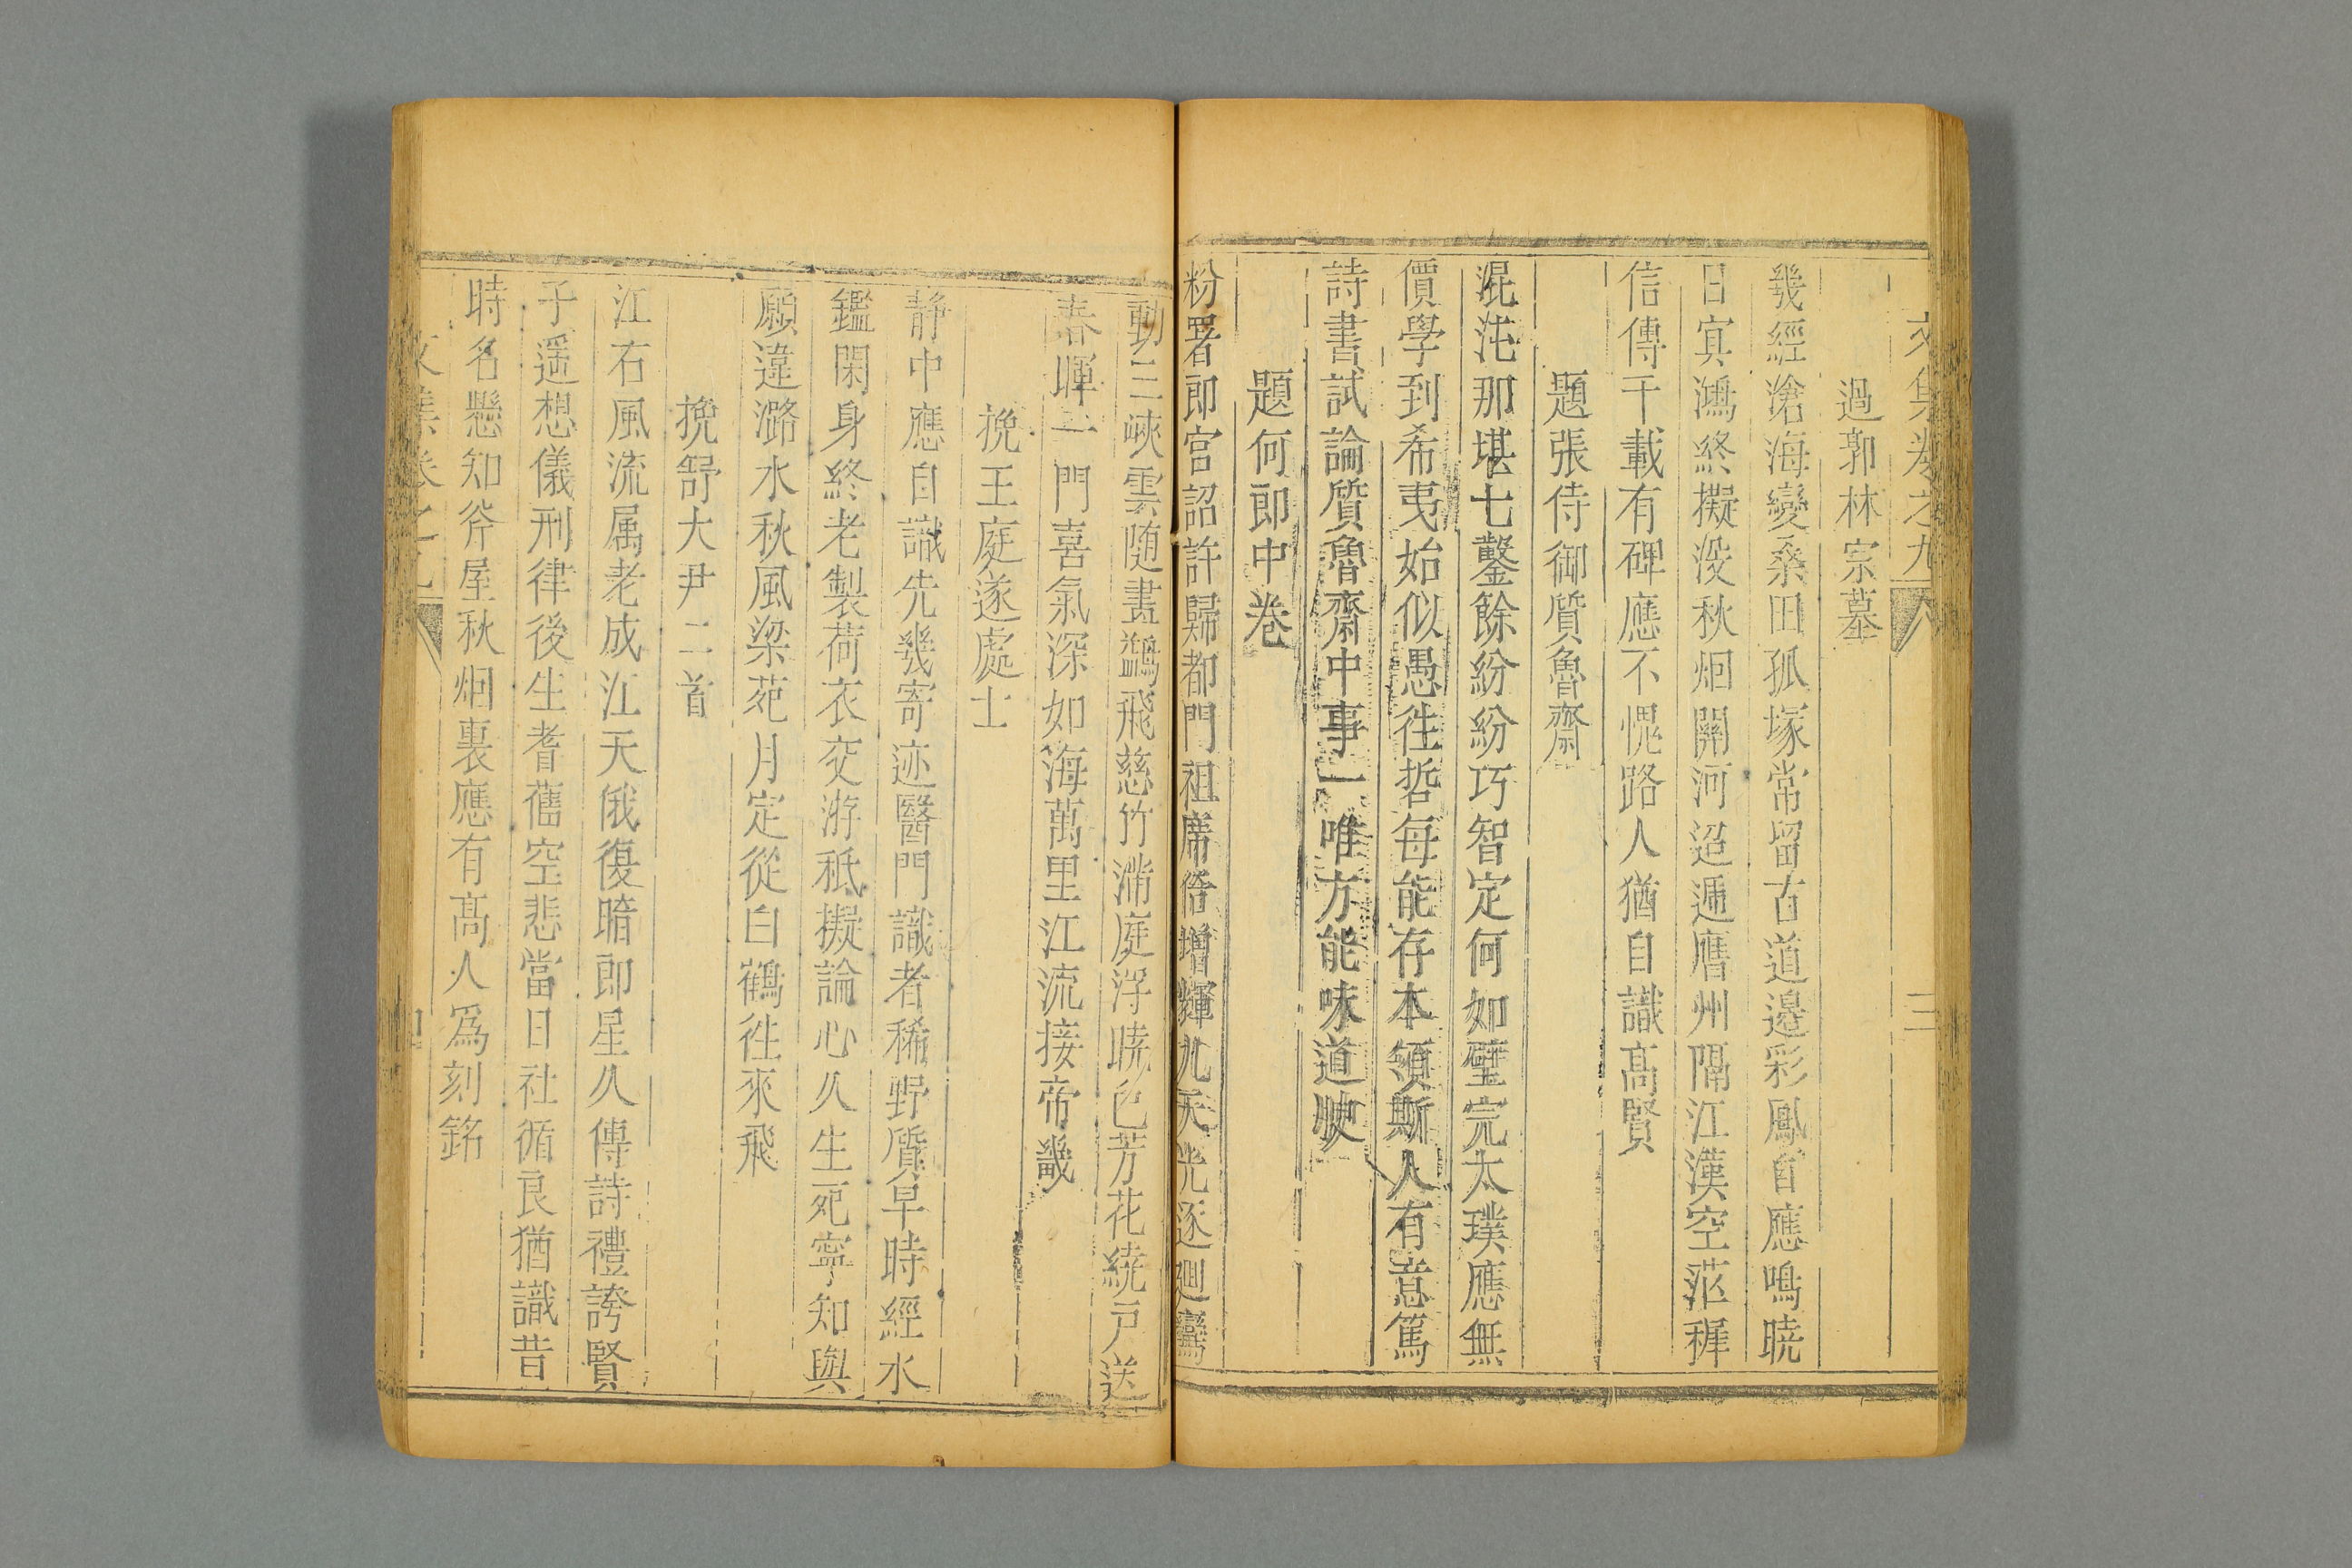 文集卷之九
三
過郭林宗墓
幾經滄海變桑田孤塚常留古道邉彩鳳自應鳴曉
日㝠鴻終擬没秋烟關河迢逓磨州隔江漢空茫稺
信傳千載有碑應不愧路人猶自識高賢
題張侍御質魯齋
混沌那堪七鑿餘紛紛巧智定何如璧完太璞應無
價學到希夷始似愚徃哲每能存本須斯人有意篤
詩書試論質魯齋中事一唯方能味道腴
題何郎中卷
粉署郎官詔許歸都門祖席倍增輝九天光逐廻鸞
動三峽雲随畫鷁飛慈竹滿庭浮曉色芳花繞戸送
春暉一門喜氣深如海萬里江流接帝畿
挽王庭遂處士
静中應自識先幾寄迹醫門識者稀野質早時經水
鑑閑身終老製荷衣交游秪擬論心久生死寧知與
願違潞水秋風梁苑月定從白鶴徃來飛
挽舒大尹二首
江右風流属老成江天俄復暗郎星久傳詩禮誇賢
子遥想儀刑律後生耆舊空悲當日社循良猶識昔
時名懸知斧屋秋烟裏應有髙人爲刻銘
文集卷之九
四